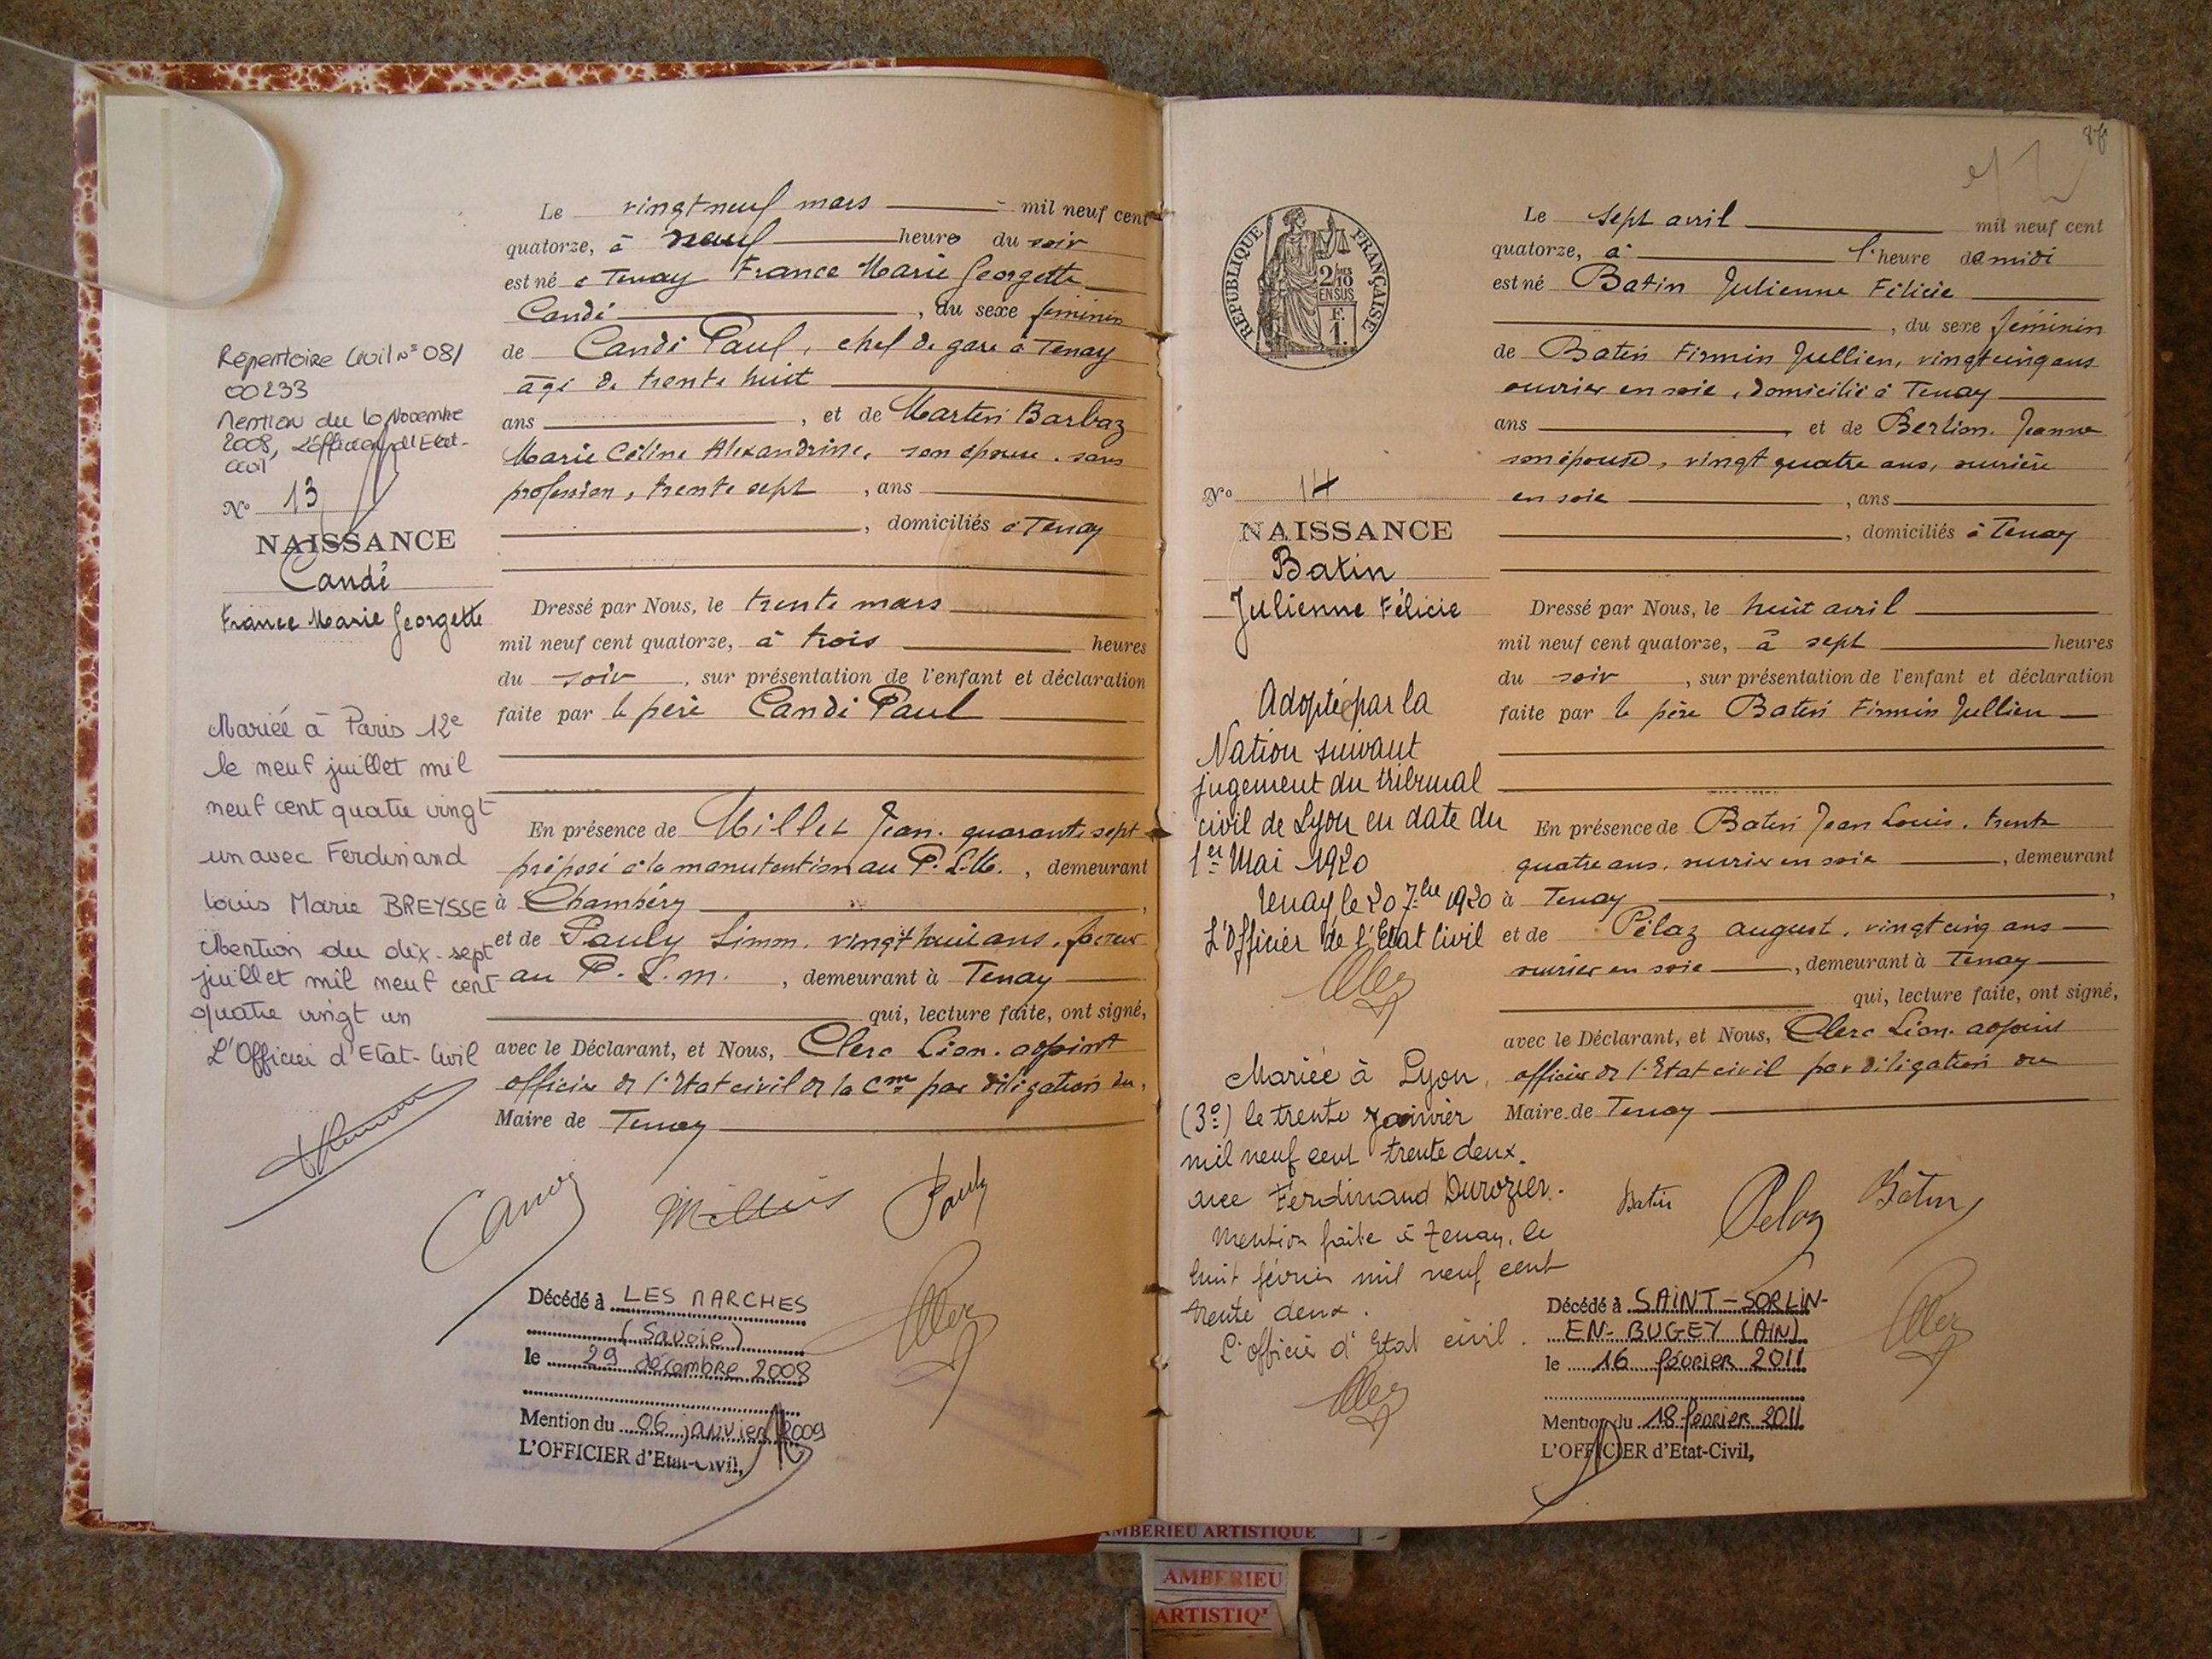 Le vingt neuf mars - mil neuf cent
quatorze, à neuf heures du soir
est né à Tenay France Marie Georgette
Candé, du sexe féminin
de Candé Paul, chef de gare à Tenay
âgé de trente huit
ans, et de Martin Barbaz
Marie Céline Alexandrine, son épouse, sans
profession, trente sept, ans
, domiciliés à Tenay
Répertoire Civil n° 08/
00233
Mention du 10 Novembre
2008, L'Officier d'Etat-
Civil
N° 13
NAISSANCE
Candé
France Marie Georgette
Dressé par Nous, le trente mars
mil neuf cent quatorze, à trois heures
du soir, sur présentation de l'enfant et déclaration
faite par le père Candé Paul
Mariée à Paris 12e
le neuf juillet mil
neuf cent quatre vingt
un avec Ferdinand
Louis Marie BREYSSE
Mention du dix-sept
juillet mil neuf cent
quatre vingt un
L'Officier d'Etat-Civil
En présence de Millet Jean, quarante sept
préposé à la manutention au P.L.M., demeurant
à Chambéry,
et de Pauly Simon, vingt huit ans, facteur
au P.L.m., demeurant à Tenay
qui, lecture faite, ont signé,
avec le Déclarant, et Nous, Clerc Léon, adjoint
officier de l'Etat civil de la Cne par délégation du,
Maire de Tenay
Pauly
Décédé à LES MARCHES
(Savoie)
le 29 décembre 2008
Mention du 06 janvier 2009
L'OFFICIER d'Etat-Civil,
RÉPUBLIQUE FRANÇAISE
2/10 DES
EN SUS
F.
1.
Le sept avril mil neuf cent
quatorze, à l'heure de midi
est né Batin Julienne Félicie
, du sexe féminin
de Batin Firmin Jullien, vingt cinq ans
ouvrier en soie, domicilié à Tenay
ans et de Berlion Jeanne
son épouse, vingt quatre ans, ouvrière
en soie, ans
, domiciliés à Tenay
N° 14
NAISSANCE
Batin
Julienne Félicie
Dressé par Nous, le huit avril
mil neuf cent quatorze, à sept heures
du soir, sur présentation de l'enfant et déclaration
faite par le père Batin Firmin Jullien
Adoptée par la
Nation suivant
jugement du tribunal
civil de Lyon en date du
1er Mai 1920
Tenay, le 20 7bre 1920
L'Officier de l'Etat Civil
En présence de Batin Jean Louis, trente
quatre ans, ouvrier en soie, demeurant
à Tenay,
et de Pélaz august, vingt cinq ans
ouvrier en soie, demeurant à Tenay
qui, lecture faite, ont signé,
avec le Déclarant, et Nous, Clerc Léon, adjoint
officier de l'Etat civil par délégation du
Maire de Tenay
Mariée à Lyon,
(3e) le trente janvier
mil neuf cent trente deux
avec Ferdinand Durozier.
Mention faite à Tenay, le
huit février mil neuf cent
trente deux.
L'officier d'Etat civil.
Batin Pelaz Batin
Décédé à SAINT-SORLIN-
EN-BUGEY (AIN)
le 16 février 2011
Mention du 18 février 2011
L'OFFICIER d'Etat-Civil,
AMBERIEU ARTISTIQUE
AMBERIEU
ARTISTIQ